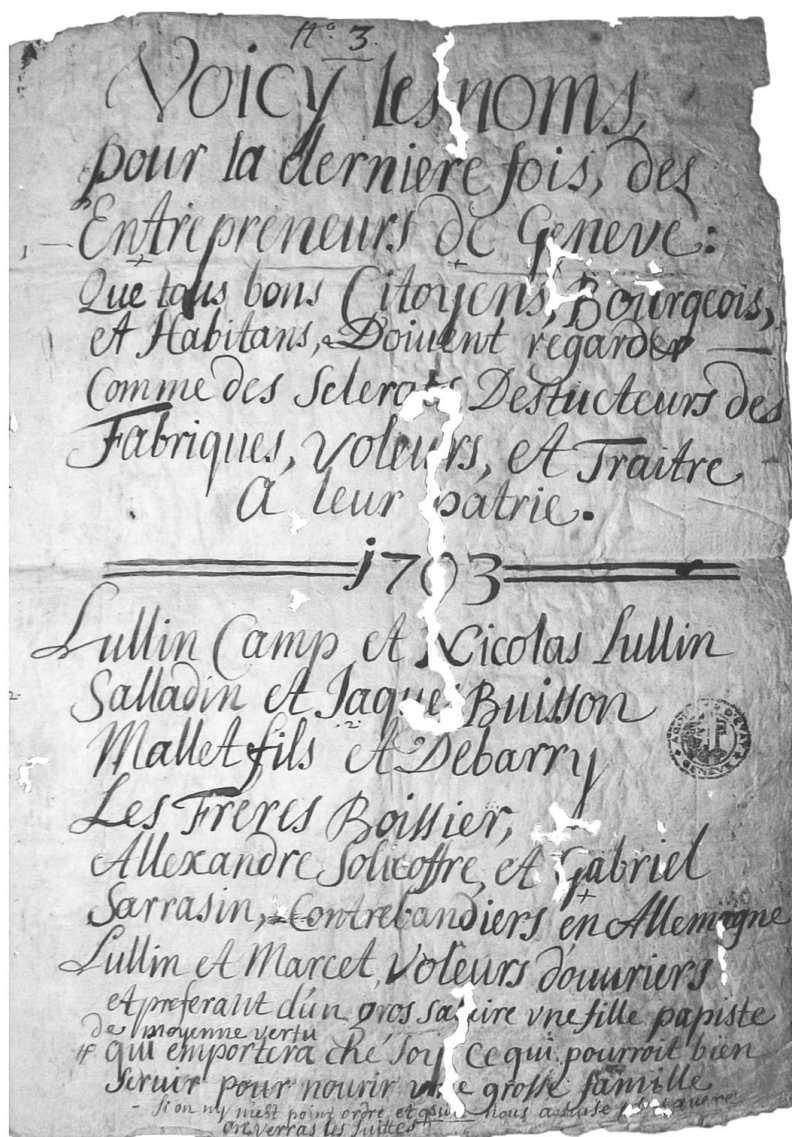 N.º 3.
Voicy les noms,
pour la derniere fois, des
Entrepreneurs de Geneve:
Que tous bons Citoyens, Bourgeois,
et Habitans, Doivent regarder
Comme des Selerats, Destucteurs des
Fabriques, voleurs, et Traitre
A leur patrie.
1703
Lullin Camp et Nicolas Lullin
Salladin et Jaques Buisson
Mallet fils et Debarry
Les Freres Boissier,
Allexandre Solicoffre, et Gabriel
Sarrasin, Contrebandiers en Allemagne
Lullin et Marcet, Voleurs d'ouvriers
et preferant d'un gros salaire vne fille papiste
de moyenne vertu
qui emportera ché soy ce qui pourroit bien
servir pour nourir vne grosse famille
si on ny mest point ordre, et nous
on verras les suittes